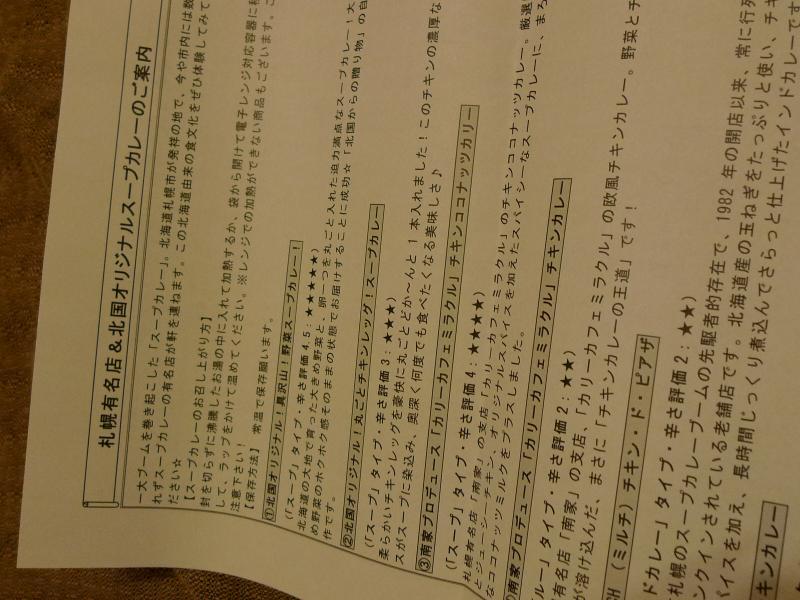 札幌有名店＆北国オリジナルスープカレーのご案内
一大ブームを巻き起こした「スープカレー」。北海道札幌市が発祥の地で、今や市内には数
れずスープカレーの有名店が軒を連ねます。この北海道由来の食文化をぜひ体験してみて
ださい☆
【スープカレーのお召し上がり方】
封を切らずに沸騰したお湯の中に入れて加熱するか、袋から開けて電子レンジ対応容器に
して、ラップをかけて温めてください。※レンジでの加熱ができない商品もございます。
注意下さい！
【保存方法】 常温で保存願います。
①北国オリジナル！具沢山！野菜スープカレー！
（「スープ」タイプ・辛さ評価 4.5：★★★★★）
北海道の大地で育った大きめ野菜と、卵一つを丸ごと入れた迫力満点なスープカレー！大
め野菜のホクホク感そのままの状態でお届けすることに成功☆「北国からの贈り物」の自
作です。
②北国オリジナル！丸ごとチキンレッグ！スープカレー
（「スープ」タイプ・辛さ評価 3：★★★）
柔らかいチキンレッグを豪快に丸ごとどか～んと 1 本入れました！このチキンの濃厚な
スがスープに染込み、奥深く何度でも食べたくなる美味しさ♪
③南家プロデュース「カリーカフェミラクル」チキンココナッツカリー
（「スープ」タイプ・辛さ評価 4：★★★★）
札幌有名店「南家」の支店「カリーカフェミラクル」のチキンココナッツカレー。厳選
とジューシーチキン、オリジナルスパイスを加えたスパイシーなスープカレーに、まろ
なココナッツミルクをプラスしました。
南家プロデュース「カリーカフェミラクル」チキンカレー
ルー」タイプ・辛さ評価 2：★★）
有名店「南家」の支店、「カリーカフェミラクル」の欧風チキンカレー。野菜とチ
が溶け込んだ、まさに「チキンカレーの王道」です！
（ミルチ）チキン・ド・ピアザ
ドカレー」タイプ・辛さ評価 2：★★）
札幌のスープカレーブームの先駆者的存在で、1982 年の開店以来、常に行列
ンクインされている老舗店です。北海道産の玉ねぎをたっぷりと使い、チキ
パイスを加え、長時間じっくり煮込んでさらっと仕上げたインドカレーです
キンカレー